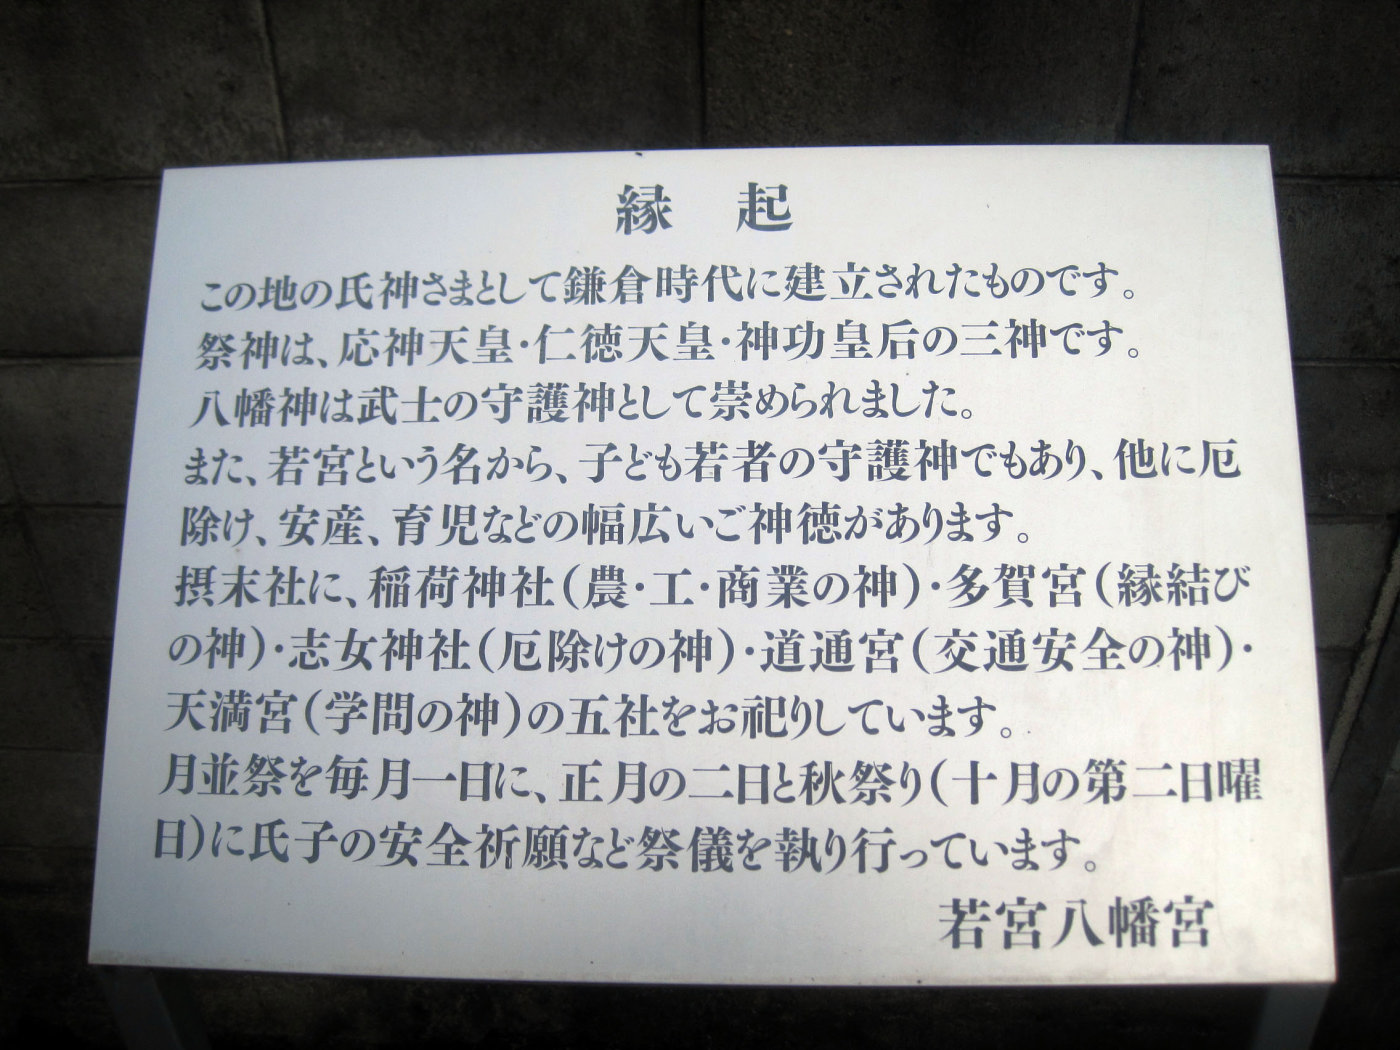 縁　起
この地の氏神さまとして鎌倉時代に建立されたものです。
祭神は、応神天皇・仁徳天皇・神功皇后の三神です。
八幡神は武士の守護神として崇められました。
また、若宮という名から、子ども若者の守護神でもあり、他に厄
除け、安産、育児などの幅広いご神徳があります。
摂末社に、稲荷神社（農・工・商業の神）・多賀宮（縁結び
の神）・志女神社（厄除けの神）・道通宮（交通安全の神）・
天満宮（学問の神）の五社をお祀りしています。
月並祭を毎月一日に、正月の二日と秋祭り（十月の第二日曜
日）に氏子の安全祈願など祭儀を執り行っています。
若宮八幡宮